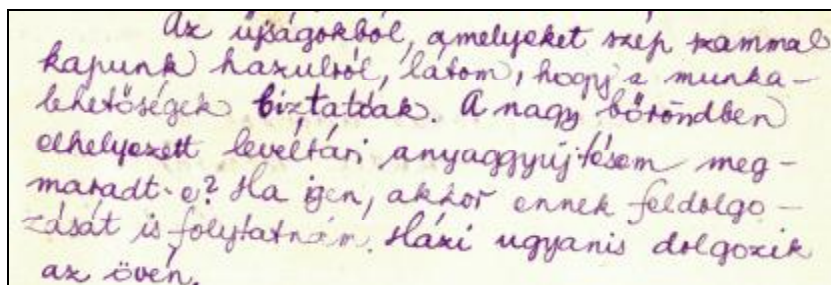 Az újságokból, amelyeket szép szammal
kapunk hazulról, látom, hogy a munka-
lehetőségek biztatóak. A nagy bőröndben
elhelyezett levéltári anyaggyűjtésem meg-
maradt-e? Ha igen, akkor ennek feldolgo-
zását is folytatnám. Házi ugyanis dolgozik
az övén.